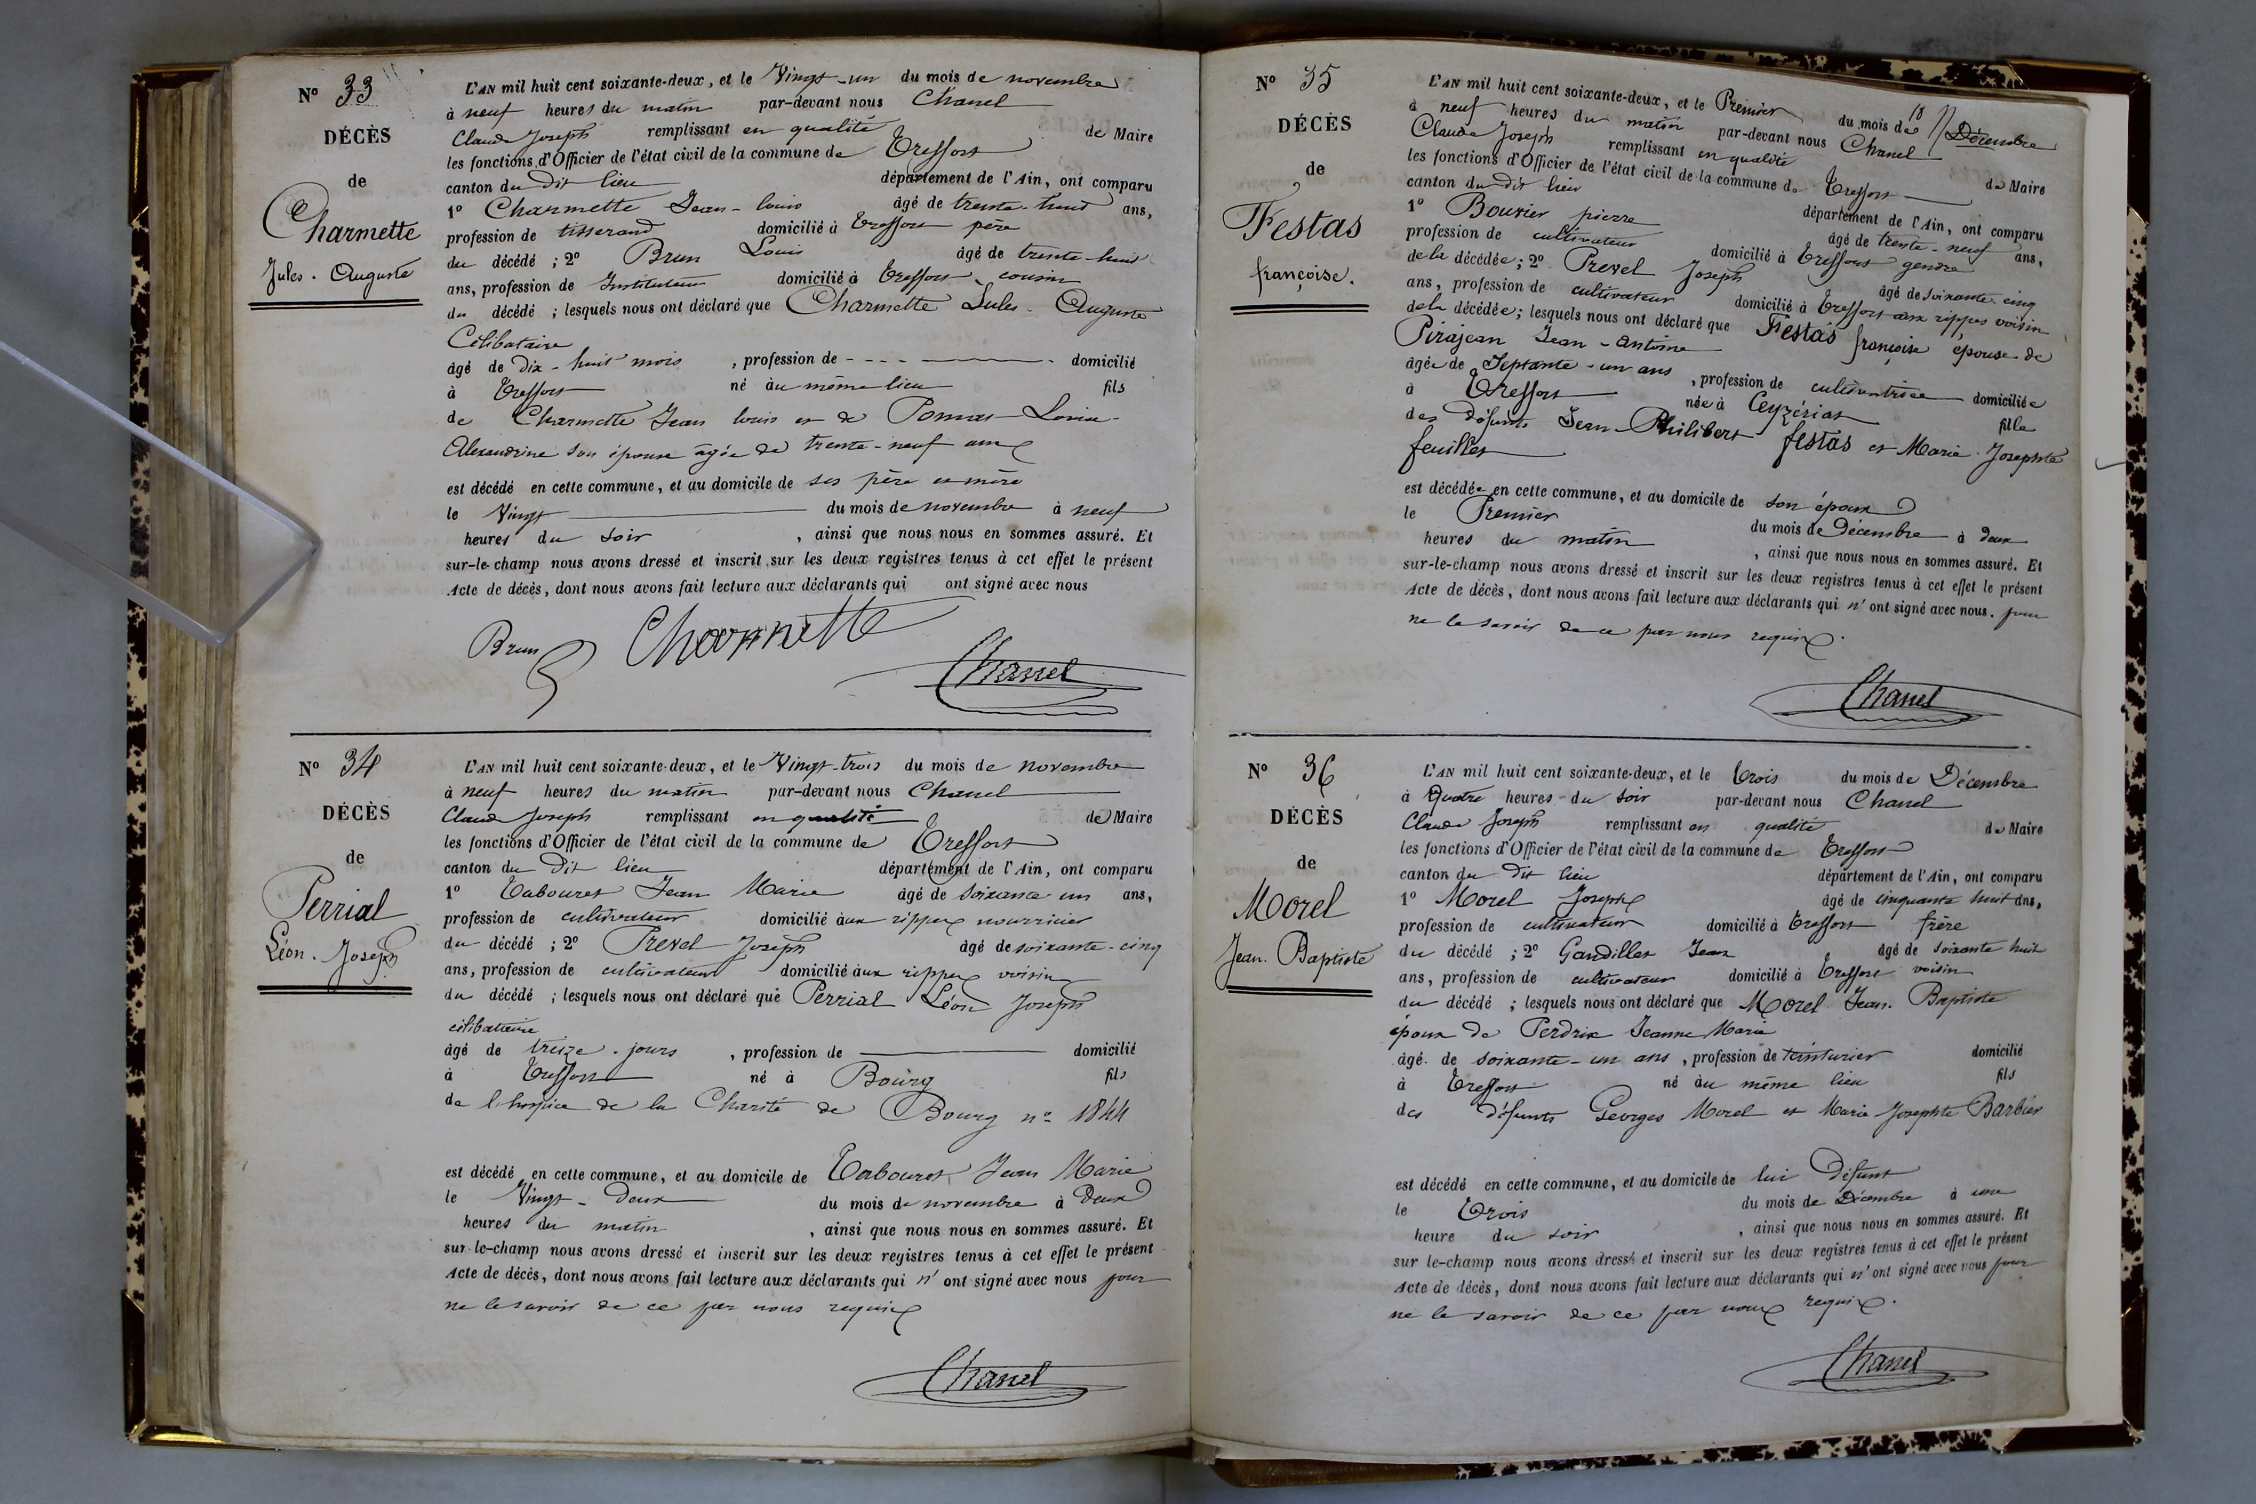 N° 33
DÉCÈS
de
Charmette
Jules. Auguste
L'AN mil huit cent soixante-deux, et le Vingt-un du mois de novembre
à neuf heures du matin par-devant nous Chanel
Claude Joseph remplissant en qualité de Maire
les fonctions d'Officier de l'état civil de la commune de Treffort
canton du dit lieu département de l'Ain, ont comparu
1° Charmette Jean-louis âgé de trente-huit ans,
profession de tisserand domicilié à Treffort père
du décédé ; 2° Brun Louis âgé de trente-huit
ans, profession de Instituteur domicilié à Treffort cousin
du décédé ; lesquels nous ont déclaré que Charmette Jules-Auguste
Célibataire
âgé de dix-huit mois , profession de - - - - domicilié
à Treffort né au même lieu fils
de Charmette Jean louis et de Louise-
Alexandrine son épouse âgée de trente-neuf ans
est décédé en cette commune, et au domicile de ses père et mère
le Vingt du mois de novembre à neuf
heures du soir , ainsi que nous nous en sommes assuré. Et
sur-le-champ nous avons dressé et inscrit sur les deux registres tenus à cet effet le présent
Acte de décès, dont nous avons fait lecture aux déclarants qui ont signé avec nous
Brun Charmette
Chanel
N° 34
DÉCÈS
de
Perrial
Léon. Joseph
L'AN mil huit cent soixante-deux, et le Vingt-trois du mois de novembre
à neuf heures du matin par-devant nous Chanel
Claude Joseph remplissant en qualité de Maire
les fonctions d'Officier de l'état civil de la commune de Treffort
canton du dit lieu département de l'Ain, ont comparu
1° Tabouret Jean Marie âgé de soixante un ans,
profession de cultivateur domicilié aux rippes nourricier
du décédé ; 2° Prevel Joseph âgé de soixante-cinq
ans, profession de cultivateur domicilié aux rippes voisin
du décédé ; lesquels nous ont déclaré que Perrial Léon Joseph
célibataire
âgé de treize jours , profession de domicilié
à Treffort né à Bourg fils
de l'hospice de la Charité de Bourg n° 1844
est décédé en cette commune, et au domicile de Tabouret Jean Marie
le Vingt-deux du mois de novembre à deux
heures du matin , ainsi que nous nous en sommes assuré. Et
sur-le-champ nous avons dressé et inscrit sur les deux registres tenus à cet effet le présent
Acte de décès, dont nous avons fait lecture aux déclarants qui n'ont signé avec nous pour
ne le savoir de ce par nous requis
Chanel
N° 35
DÉCÈS
de
Festas
françoise.
L'AN mil huit cent soixante-deux, et le Premier du mois de Décembre
à neuf heures du matin par-devant nous Chanel
Claude Joseph remplissant en qualité de Maire
les fonctions d'Officier de l'état civil de la commune de Treffort
canton du dit lieu département de l'Ain, ont comparu
1° Bouvier pierre âgé de trente-neuf ans,
profession de cultivateur domicilié à Treffort gendre
de la décédée ; 2° Prevel Joseph âgé de soixante-cinq
ans, profession de cultivateur domicilié à Treffort aux rippes voisin
de la décédée ; lesquels nous ont déclaré que Festas françoise épouse de
Pirajean Jean-Antoine
âgée de Septante-un ans , profession de cultivatrice domiciliée
à Treffort née à Ceyzériat fille
des défunts Jean-Philibert festas et Marie-Josephte
feuillet
est décédée en cette commune, et au domicile de son époux
le Premier du mois de Décembre à deux
heures du matin , ainsi que nous nous en sommes assuré. Et
sur-le-champ nous avons dressé et inscrit sur les deux registres tenus à cet effet le présent
Acte de décès, dont nous avons fait lecture aux déclarants qui n'ont signé avec nous. pour
ne le savoir de ce par nous requis.
Chanel
N° 36
DÉCÈS
de
Morel
Jean. Baptiste
L'AN mil huit cent soixante-deux, et le trois du mois de Décembre
à Quatre heures du soir par-devant nous Chanel
Claude Joseph remplissant en qualité de Maire
les fonctions d'Officier de l'état civil de la commune de Treffort
canton du dit lieu département de l'Ain, ont comparu
1° Morel Joseph âgé de cinquante huit ans,
profession de cultivateur domicilié à Treffort frère
du décédé ; 2° Gandillet Jean âgé de soixante huit
ans, profession de cultivateur domicilié à Treffort voisin
du décédé ; lesquels nous ont déclaré que Morel Jean. Baptiste
époux de Perdrix Jeanne Marie
âgé de soixante-un ans , profession de teinturier domicilié
à Treffort né au même lieu fils
des défunts Georges Morel et Marie Josephte Barbier
est décédé en cette commune, et au domicile de lui Défunt
le trois du mois de Décembre à une
heure du soir , ainsi que nous nous en sommes assuré. Et
sur-le-champ nous avons dressé et inscrit sur les deux registres tenus à cet effet le présent
Acte de décès, dont nous avons fait lecture aux déclarants qui n'ont signé avec nous pour
ne le savoir de ce par nous requis.
Chanel